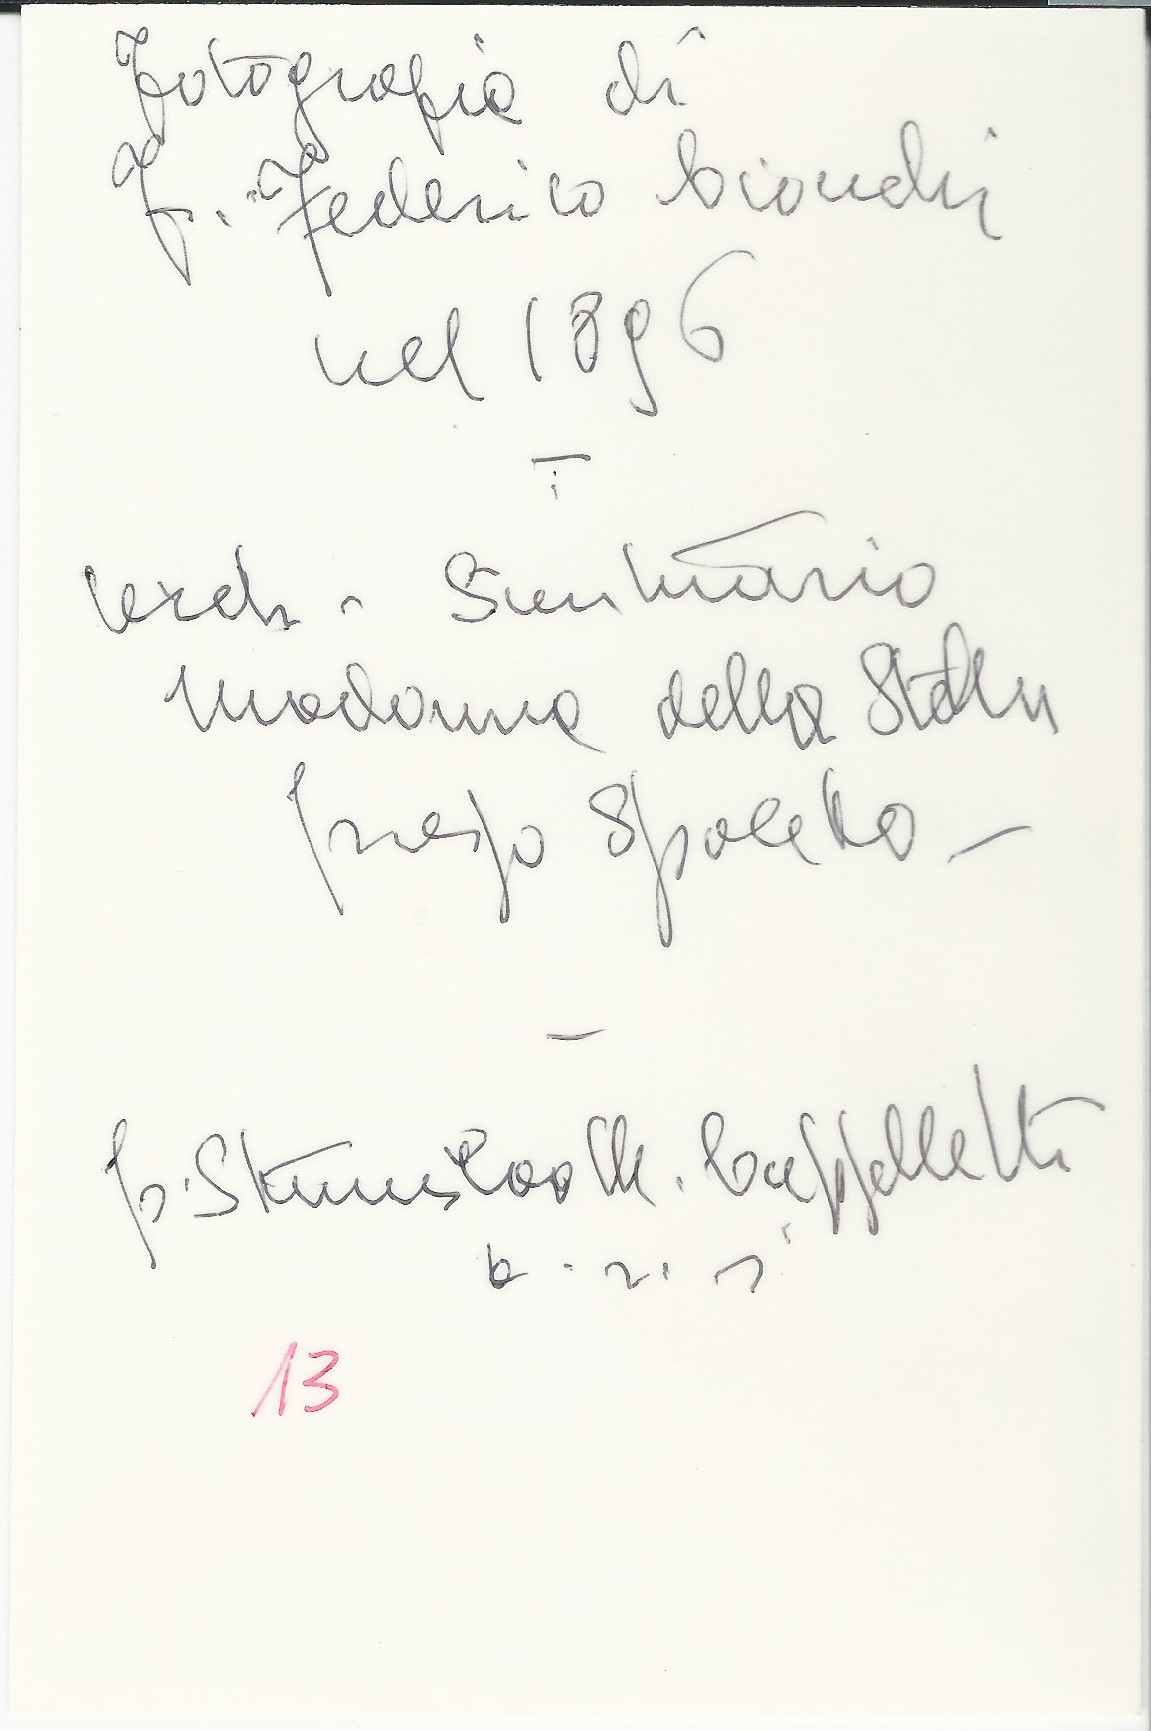 Fotografia di
F. Federico Biondi
nel 1896
—
Santuario
Madonna della Stella
presso Spoleto —
—
p. Stanislao M. Cappelletti
13